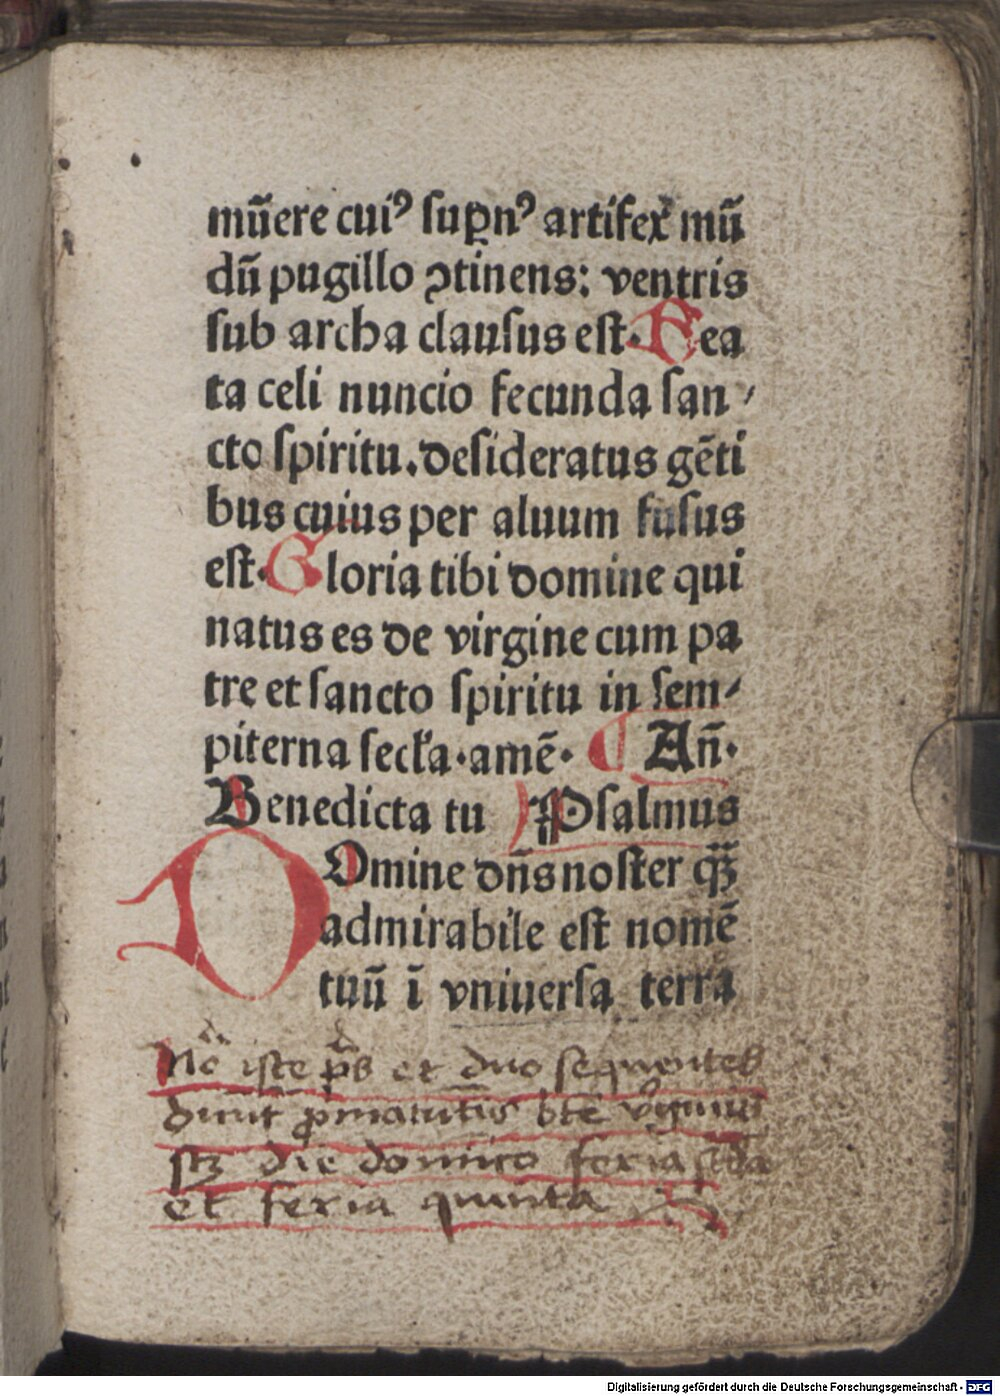 mūere cuiꝰ ſuꝑnꝰ artifex mū
dū pugillo ꝯtinens: ventris
ſub archa clauſus eſt. Bea
ta celi nuncio fecunda ſan⸗
cto ſpiritu. deſideratus gēti
bus cuius per aluum fuſus
eſt. Gloria tibi domine qui
natus es de virgine cum pa
tre et ſancto ſpiritu in ſem⸗
piterna ſecľa. amē. ¶ Añ.
Benedicta tu Pſalmus
DOmine dn̄s noſter qͣꝫ
admirabile eſt nomē
tuū ī vniuerſa terra
No iſte pš et duo ſequentes
dicunt ꝓ matutis bte v̓ginis
ſcꝫ die domico feria ſcda
et feria quinta
Digitalisierung gefördert durch die Deutsche Forschungsgemeinschaft - DFG